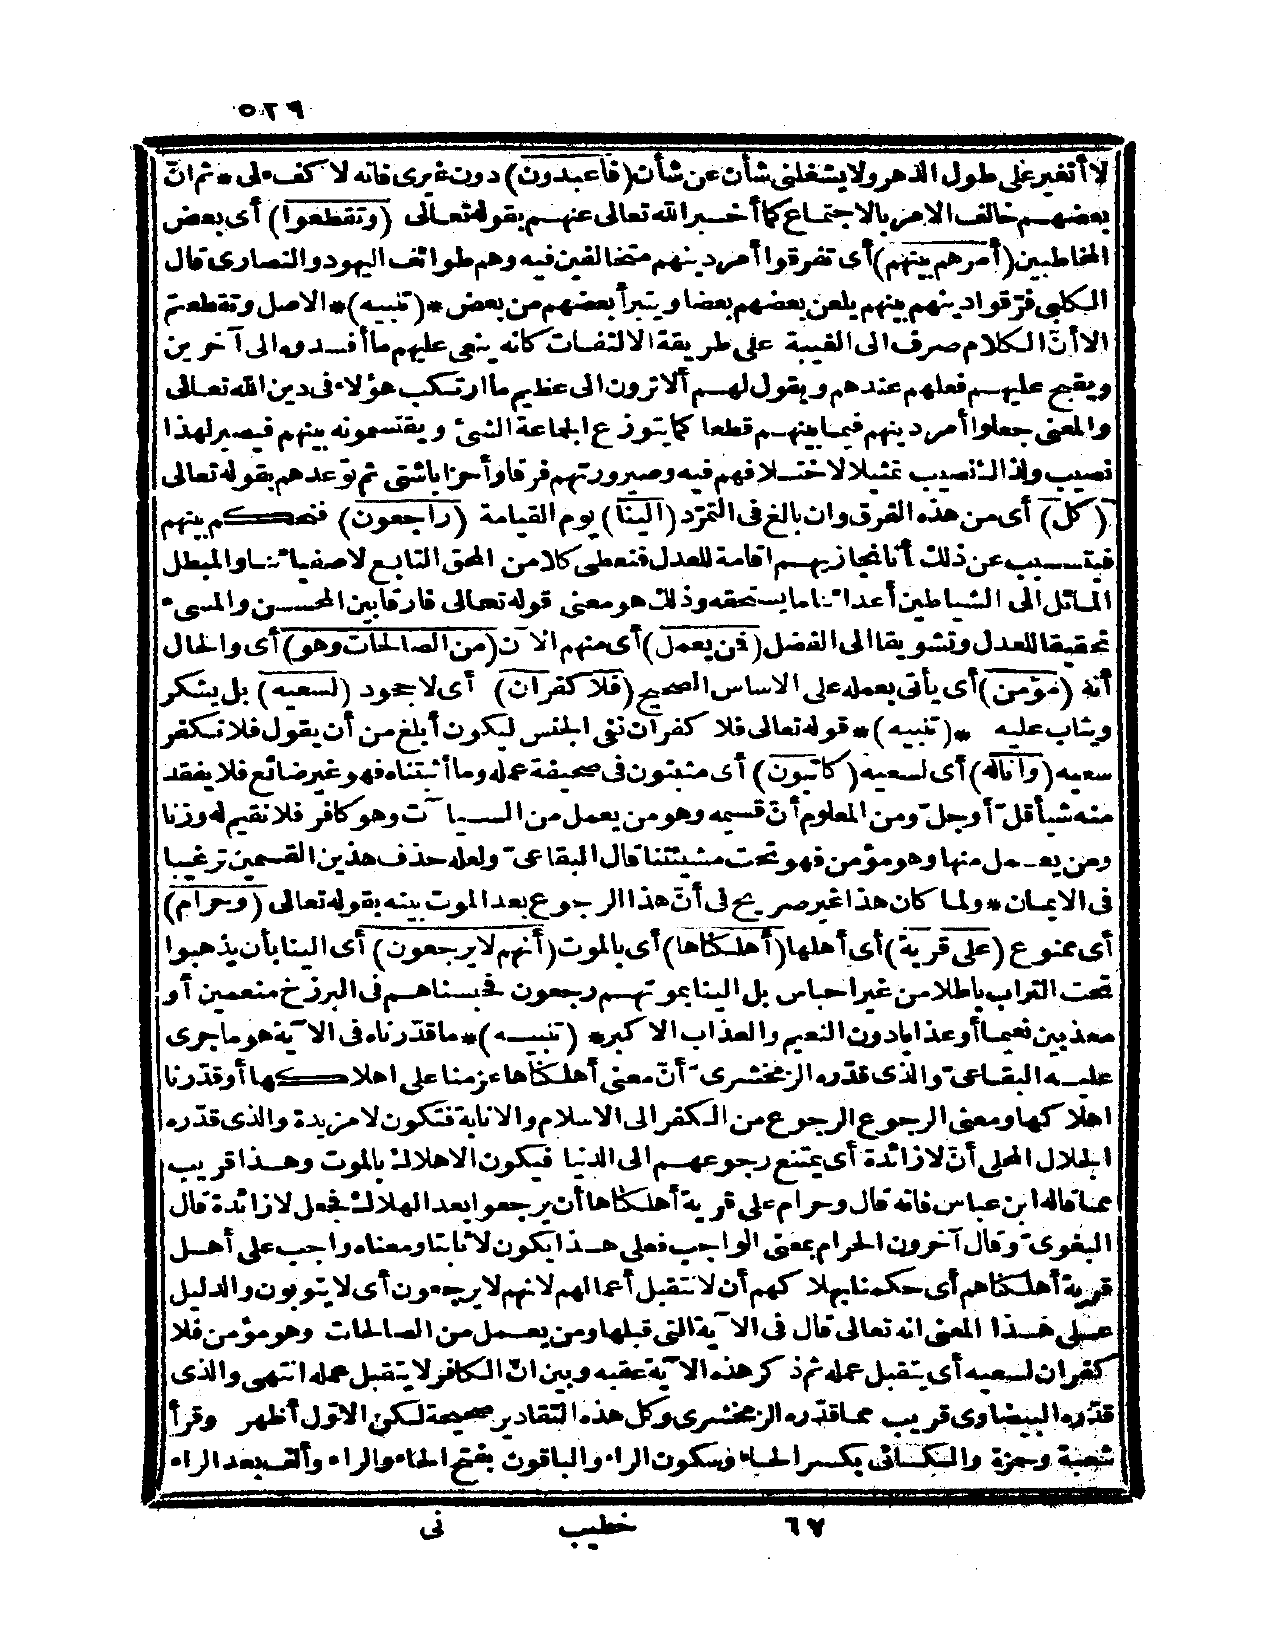 ٥٢٩
لا أتغير على طول الدهر ولا يشغلنى شأن عن شأن (فاعبدون) دون غيرى فانه لا كفء لى * ثم انّ
بعضهم خالف الامر بالاجتماع كما أخبر الله تعالى عنهم بقوله تعالى (وتقطعوا) أى بعض
المخاطبين (أمرهم بينهم) أى تفرقوا أمر دينهم متخالفين فيه وهم طوائف اليهود والنصارى قال
الكلبى فرّقوا دينهم بينهم يلعن بعضهم بعضا ويتبرأ بعضهم من بعض * (تنبيه) * الاصل وتقطعتم
الا أنّ الكلام صرف الى الغيبة على طريقة الالتفات كانه ينعى عليهم ما أفسدوه الى آخرين
ويقبح عليهم فعلهم عندهم ويقول لهم ألا ترون الى عظيم ما ارتكب هؤلاء فى دين الله تعالى
والمعنى جعلوا أمر دينهم فيما بينهم قطعا كما يتوزع الجماعة الشئ ويقتسمونه بينهم فيصير لهذا
نصيب ولذاك نصيب تمثيلا لاختلافهم فيه وصيرورتهم فرقا وأحزابا شتى ثم توّعدهم بقوله تعالى
(كل) أى من هذه الفرق وان بالغ فى التمرّد (الينا) يوم القيامة (راجعون) فنحكم بينهم
فيتسبب عن ذلك أنا نجازيهم اقامة للعدل فنعطى كلا من المحق التابع لاصفيائنا والمبطل
المائل الى الشياطين أعدائنا ما يستحقه وذلك هو معنى قوله تعالى فارقا بين المحسن والمسىء
تحقيقا للعدل وتشويقا الى الفضل (فمن يعمل) أى منهم الآن (من الصالحات وهو) أى والحال
أنه (مؤمن) أى يأتى بعمله على الاساس الصحيح (فلا كفران) أى لا جحود (لسعيه) بل يشكر
ويثاب عليه * (تنبيه) * قوله تعالى فلا كفران نفى الجنس ليكون أبلغ من أن يقول فلا تكفر
سعيه (وانا له) أى لسعيه (كاتبون) أى مثبتون فى صحيفة عمله وما أثبتناه فهو غير ضائع فلا يفقد
منه شيأ قلّ أو جلّ ومن المعلوم أنّ قسيمه وهو من يعمل من السيآت وهو كافر فلا نقيم له وزنا
ومن يعمل منها وهو مؤمن فهو تحت مشيئتنا قال البقاعىّ ولعله حذف هذين القسمين ترغيبا
فى الايمان * ولما كان هذا غير صريح فى أنّ هذا الرجوع بعد الموت بينه بقوله تعالى (وحرام)
أى ممنوع (على قرية) أى أهلها (أهلكناها) أى بالموت (أنهم لا يرجعون) أى الينا بأن يذهبوا
تحت التراب باطلا من غير احباس بل الينا بموتهم رجعون فحبسناهم فى البرزخ منعمين أو
معذبين نعيما أو عذابا دون النعيم والعذاب الاكبر * (تنبيه) * ما قدّرناه فى الآية هو ما جرى
عليه البقاعىّ والذى قدّره الزمخشرىّ أنّ معنى أهلكناها عزمنا على اهلاكها أو قدّرنا
اهلاكها ومعنى الرجوع الرجوع من الكفر الى الاسلام والانابة فتكون لا مزيدة والذى قدّره
الجلال المحلى أنّ لا زائدة أى يمتنع رجوعهم الى الدنيا فيكون الاهلاك بالموت وهذا قريب
مما قاله ابن عباس فانه قال وحرام على قرية أهلكناها أن يرجعوا بعد الهلاك فجعل لا زائدة قال
البغوىّ وقال آخرون الحرام بمعنى الواجب فعلى هذا يكون لا ثابتا ومعناه واجب على أهل
قرية أهلكناهم أى حكمنا بهلاكهم أن لا تتقبل أعمالهم لانهم لا يرجعون أى لا يتوبون والدليل
على هذا المعنى انه تعالى قال فى الآية التى قبلها ومن يعمل من الصالحات وهو مؤمن فلا
كفران لسعيه أى يتقبل عمله ثم ذكر هذه الآية عقبه وبين انّ الكافر لا يتقبل عمله انتهى والذى
قدّره البيضاوى قريب مما قدّره الزمخشرى وكل هذه التقادير صحيحة لكن الاوّل أظهر وقرأ
شعبة وحمزة والكسائى بكسر الحاء وسكون الراء والباقون بفتح الحاء والراء وألف بعد الراء
٦٧ خطيب نى